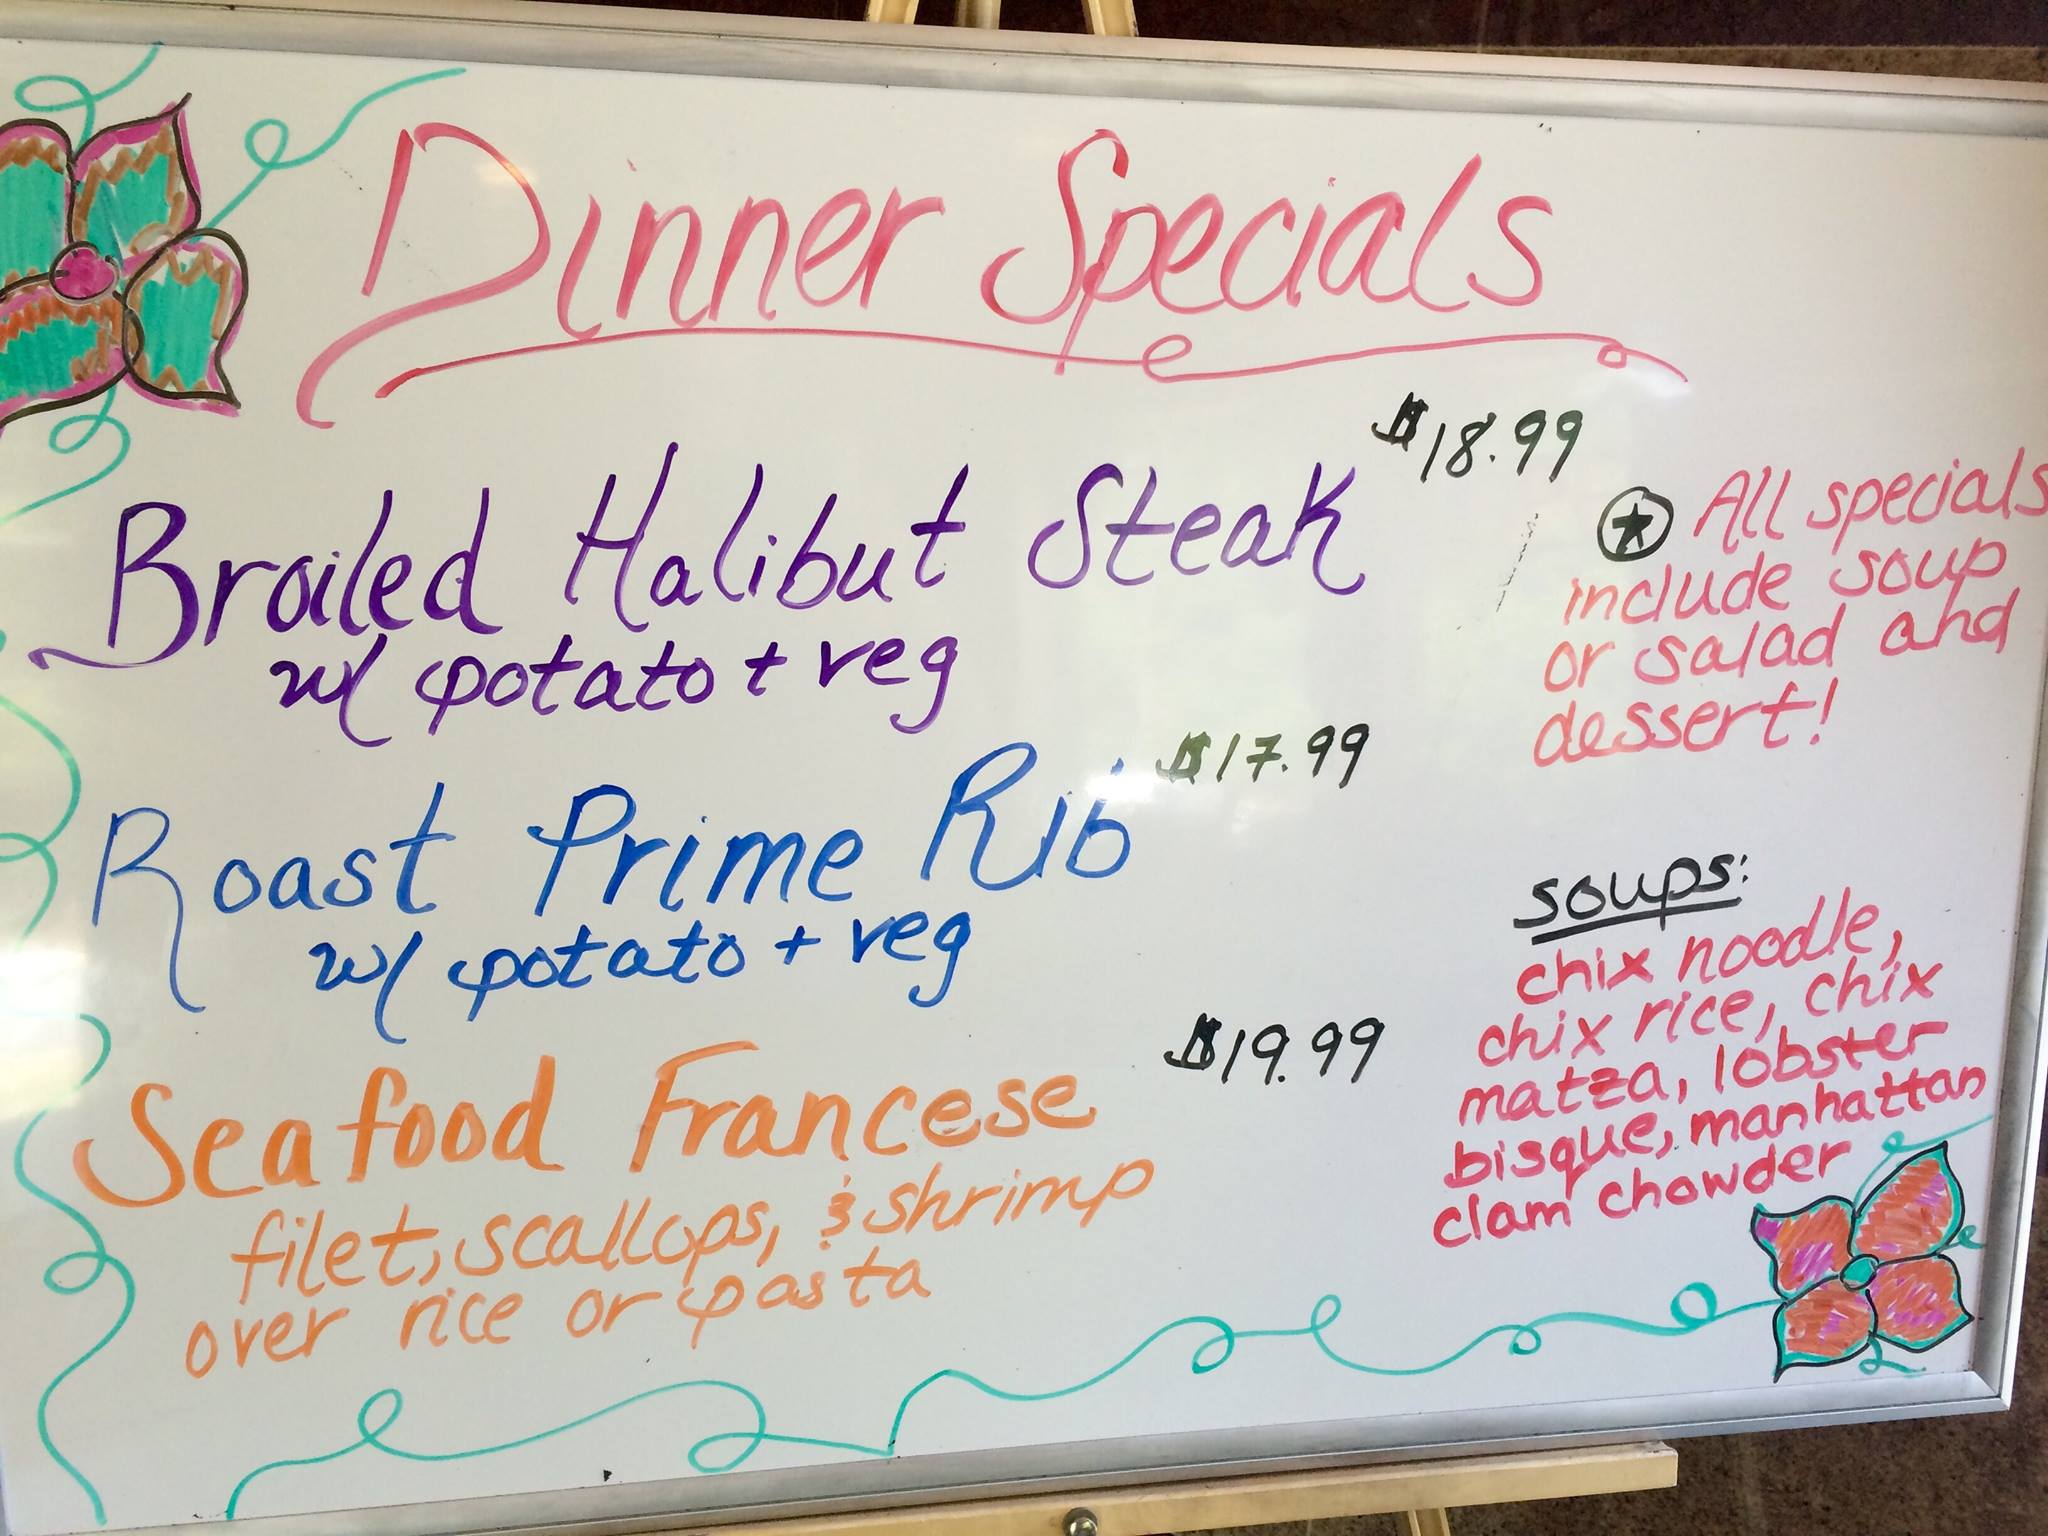 Dinner Specials
$18.99
Broiled Halibut Steak
w/ potato + veg
$17.99
Roast Prime Rib
w/ potato + veg
$19.99
Seafood Francese
filet, scallops, & shrimp
over rice or pasta
All specials
include soup
or salad and
dessert!
soups:
chix noodle,
chix rice, chix
matza, lobster
bisque, manhattan
clam chowder